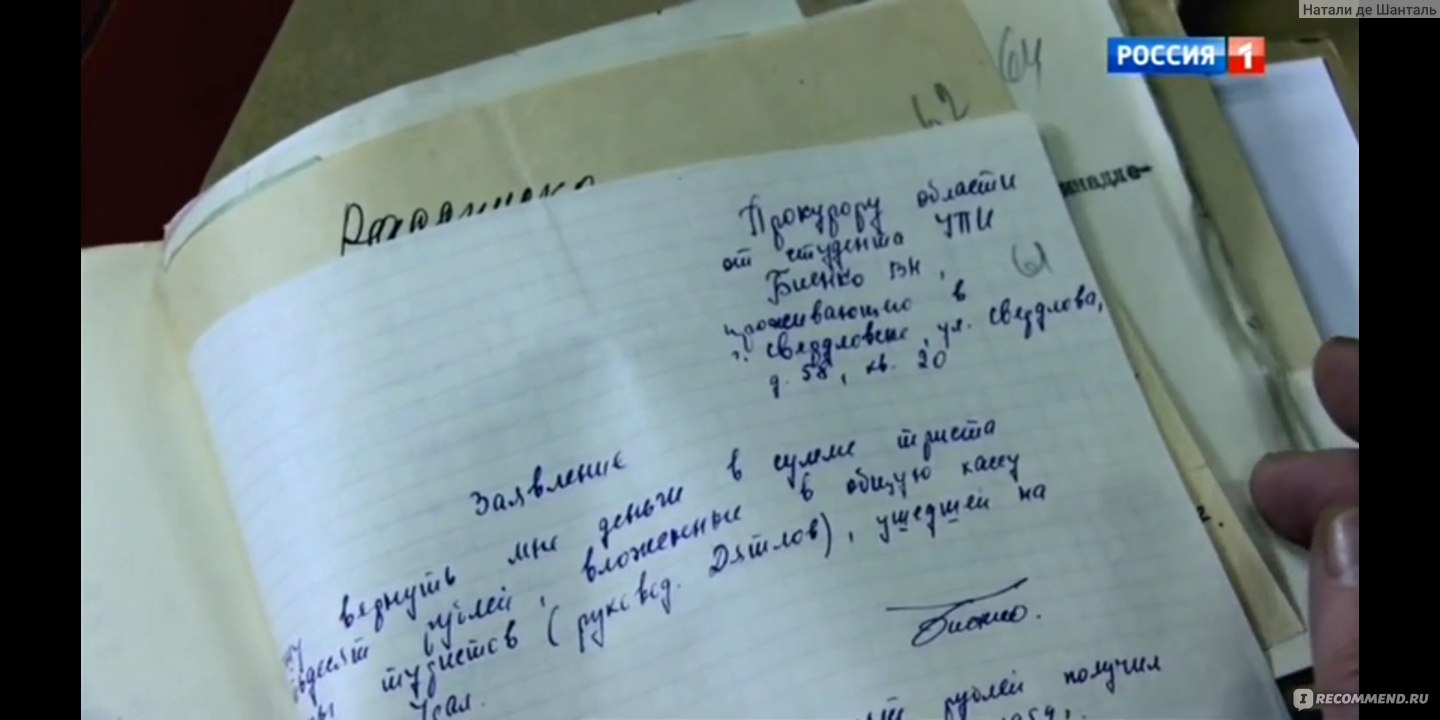 Натали де Шанталь
РОССИЯ 1
64
62
надле-
Прокурору области
от студента УПИ
Биенко ВН,
61
проживающего в
г. Свердловске, ул. Свердлова,
д. 58, кв. 20
Заявление
вернуть мне деньги в сумме триста
рублей, вложенные в общую кассу
туристов (руковод. Дятлов), ушедшей на
Урал.
Биенко.
рублей получил
г.
IRECOMMEND.RU